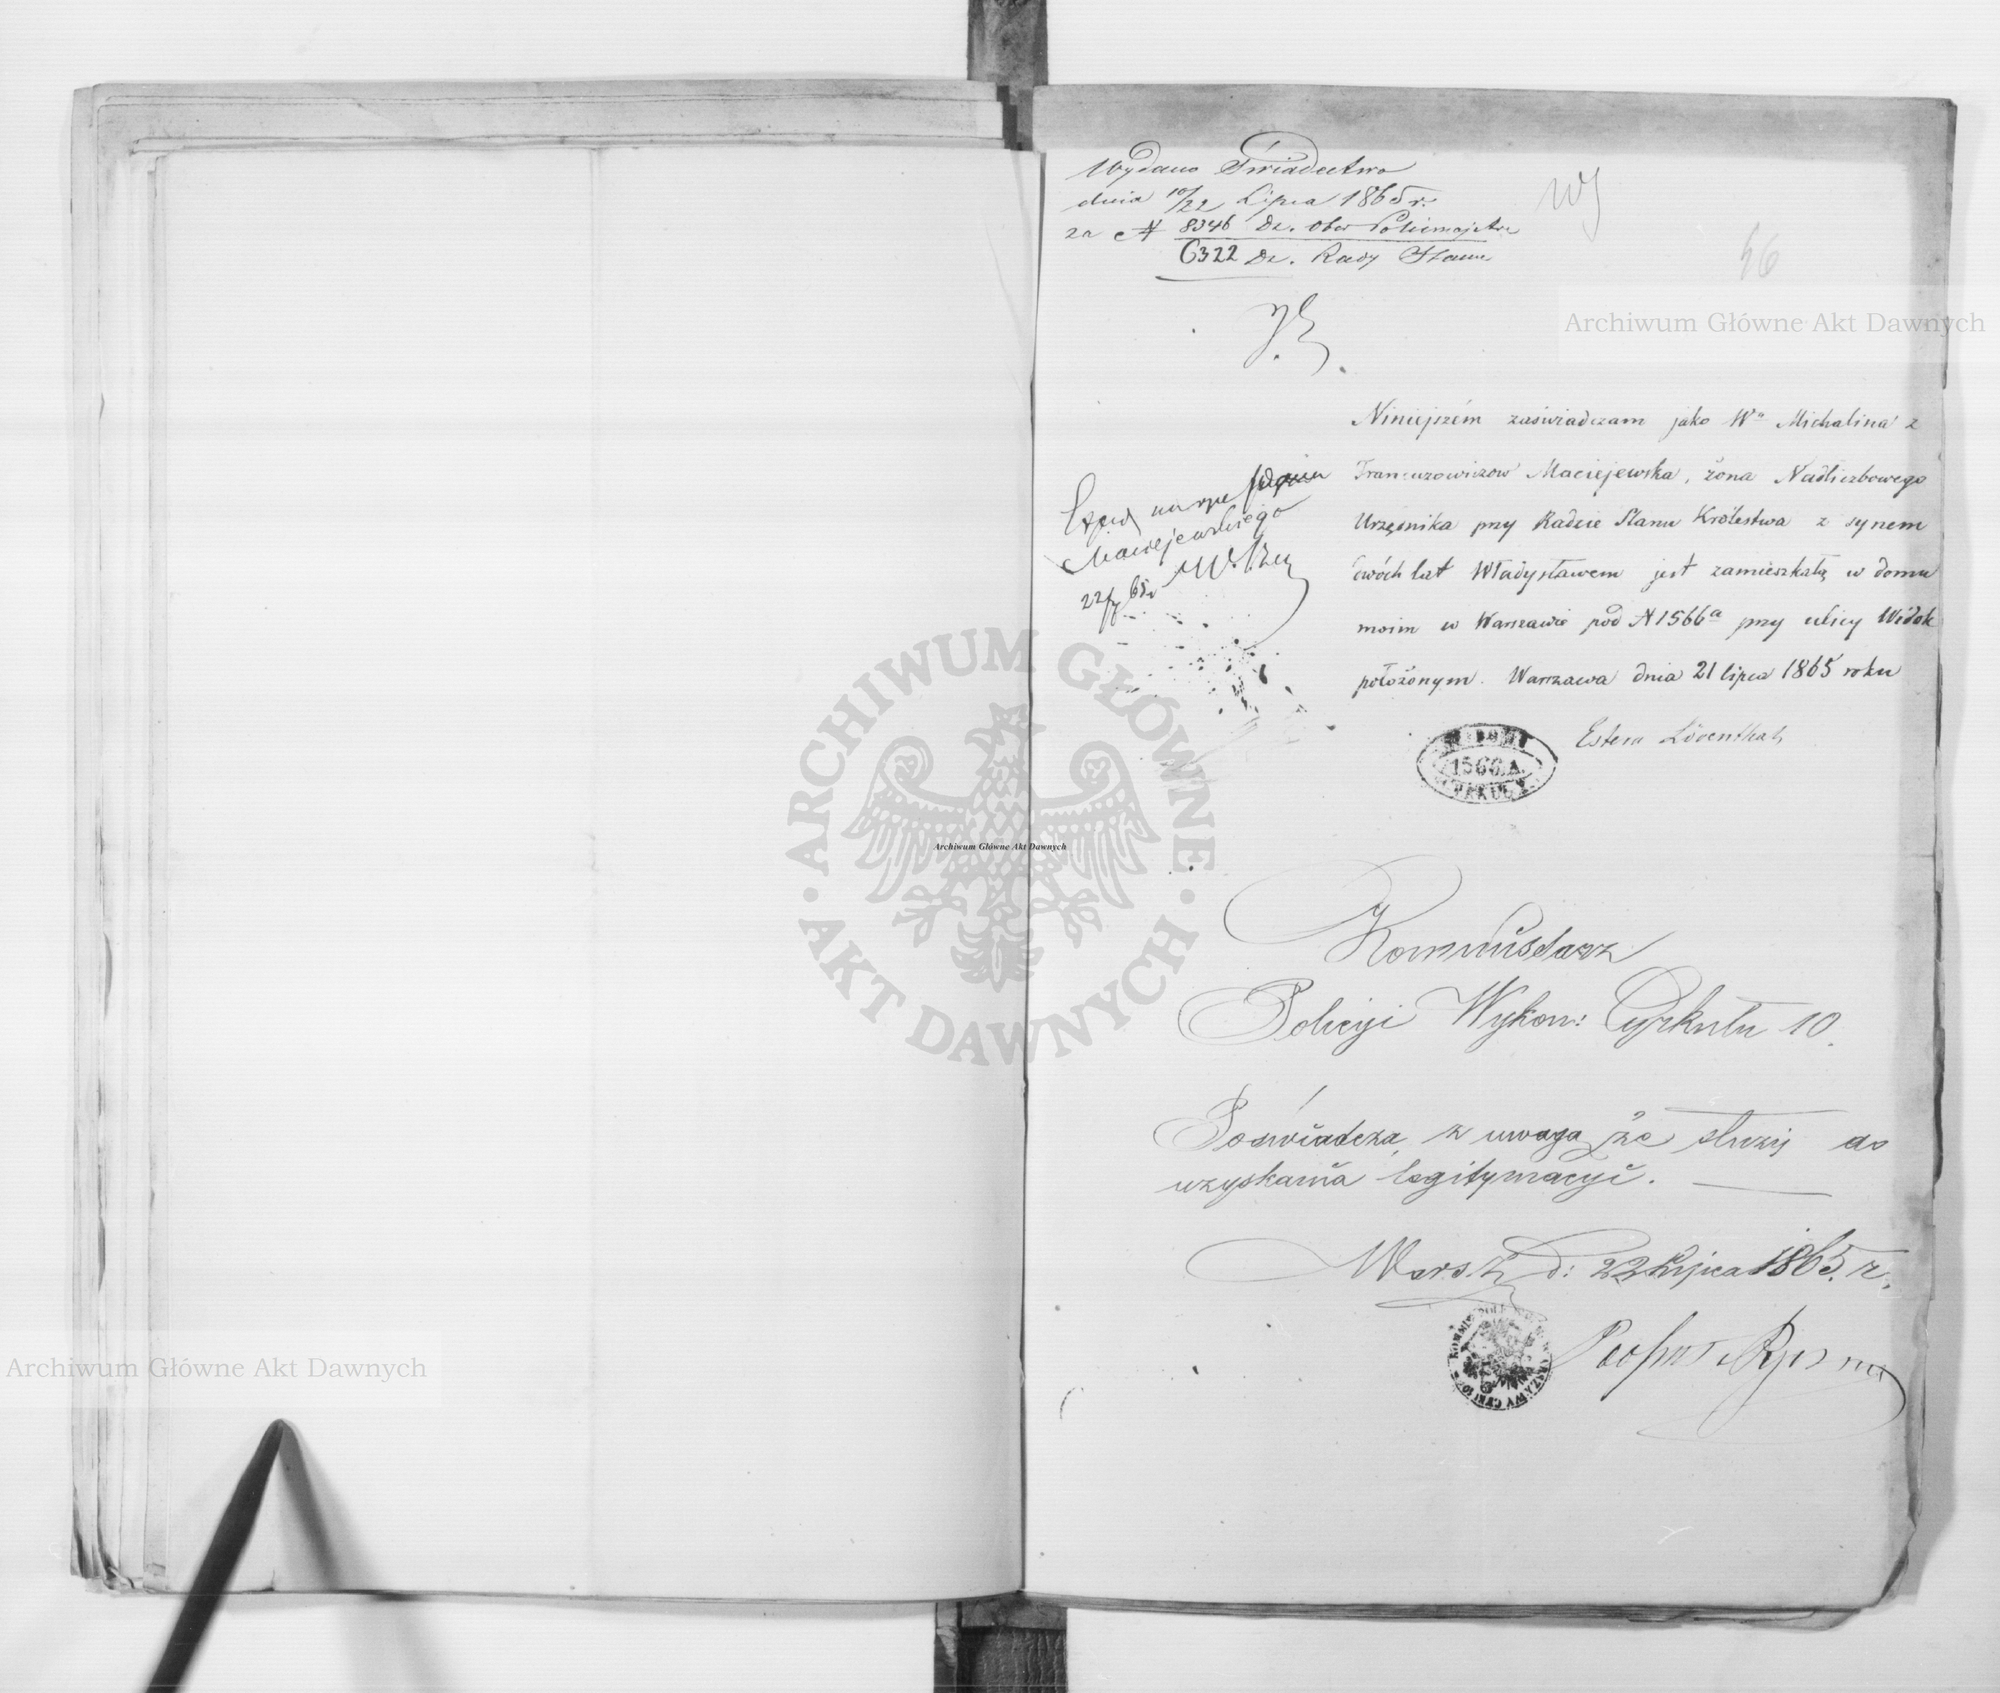 Wydano Świadectwo
dnia 10/22 Lipca 1865 r.
za N 8346 Dz. Ober Policmajstra
6322 Dz. Rady Stanu
46
Archiwum Główne Akt Dawnych
Niniejszém zaświadczam jako Wa Michalina z
Francuzowiczow Maciejewska, żona Nadliczbowego
Urzędnika przy Radzie Stanu Królestwa z synem
dwóch lat Władysławem jest zamieszkałą w domu
moim w Warszawie pod N 1566a przy ulicy Widok
położonym. Warszawa dnia 21 lipca 1865 roku
Estera Löventhal
Maciejewskiego
22/7 65
1566.A.
ARCHIWUM GŁÓWNE AKT DAWNYCH
Archiwum Główne Akt Dawnych
Kommissarz
Policyi Wykon: Cyrkułu 10.
Poświadcza, z uwagą że służy do
uzyskania legitymacyi.
Warsz d: 22 Lipca 1865. r.
Archiwum Główne Akt Dawnych